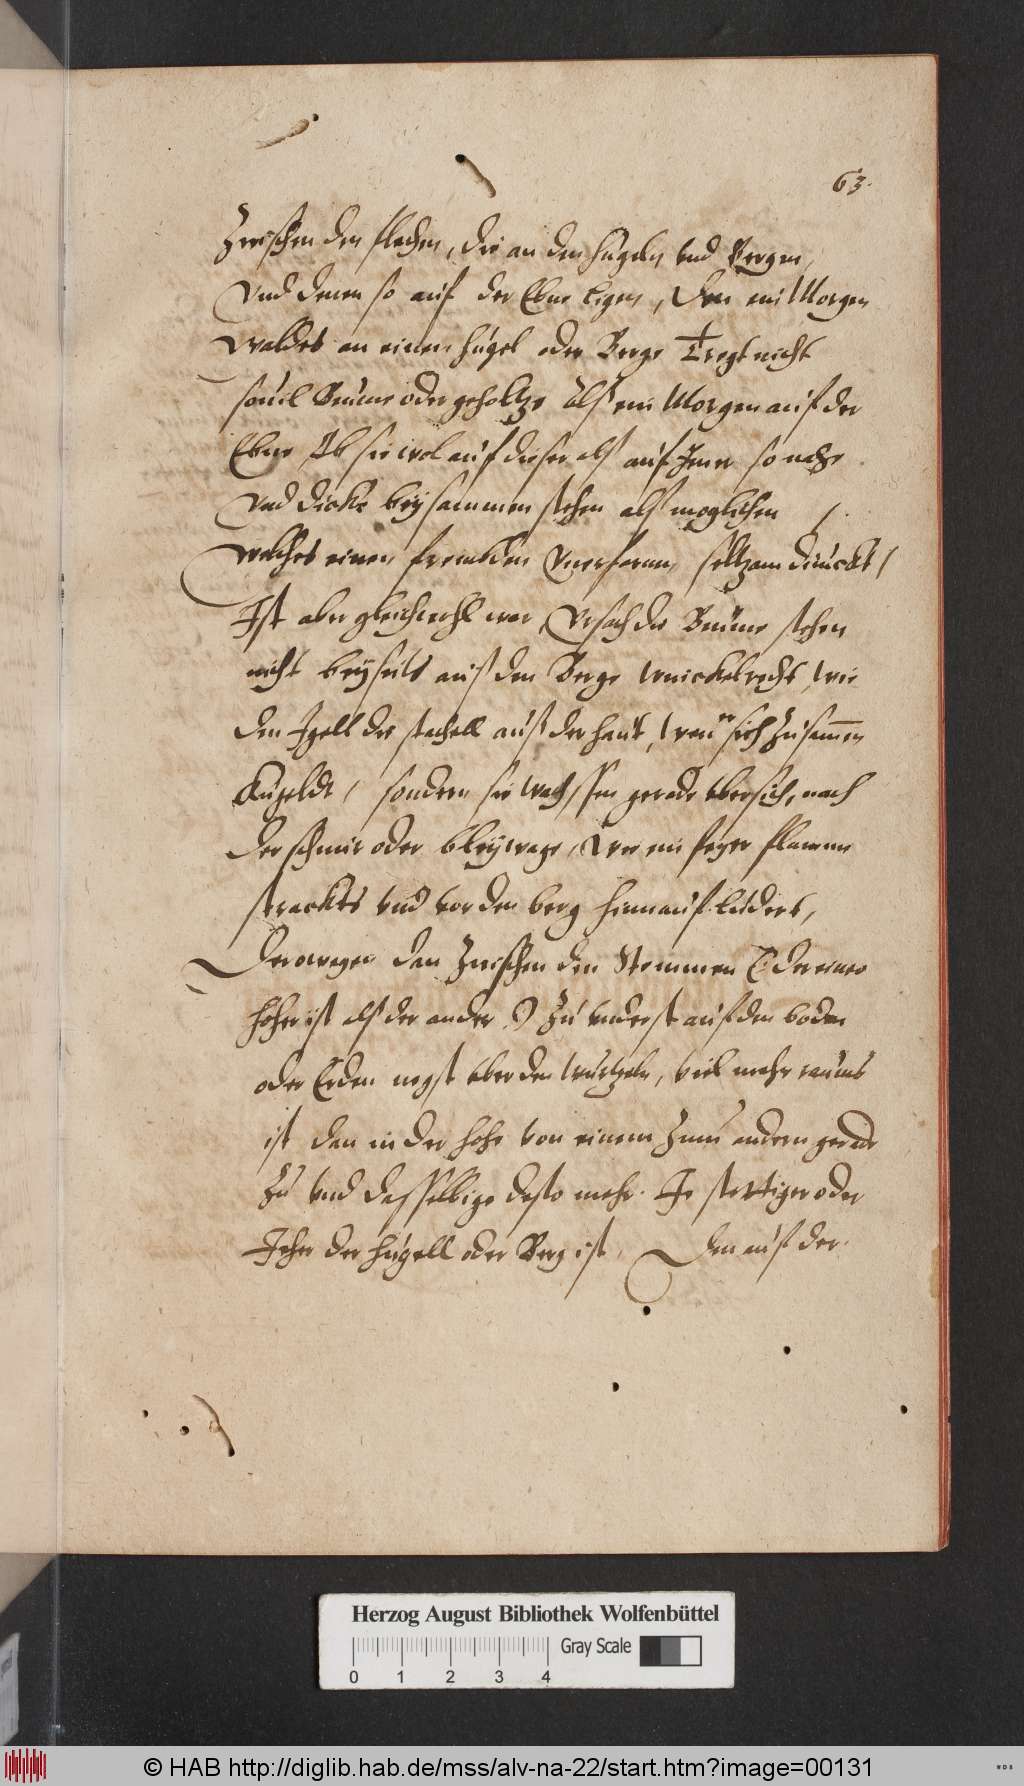 63.
Zwischen den flechen, die an den hügeln vnd Bergen,
Vnd denen so auf der Ebne ligen, Den ein Morgen
waldes an einem hügel oder Berge Tregt nicht
souil Beume oder geholtze Alß ein Morgen auf der
Ebne, Ob sie wol auf dieser alß auf Jener so nahe
Vnd dicke beysammen stehen alß moglichen
welches einen frembden Vnerfarnen seltzam dunckt /
Ist aber gleichwohl war, Vrsach die Beume stehen
nicht beyseits auß dem Berge winckelrecht, wie
dem Igell die stachell auß der haut, wan er sich zusammen
Kugeldt / sondern sie wachssen gerade vbersich, nach
der schnur oder bleywage, wie ein feyer flamme
strackts vnd vor dem berg hinnauf
Derowegen dan zwischen den Stemmen (: der eines
hoher ist alß der ander :) zu vnderst auf dem boden
oder Erden negst vber den wurtzeln, viel mehr raums
ist dan in der hohe von einem zum andern gerade
zu vnd dasselbige desto mehr. Je stertiger oder
Jeher der hügell oder Berg ist, Den auf der
Herzog August Bibliothek Wolfenbüttel
Gray Scale
0 1 2 3 4
© HAB http://diglib.hab.de/mss/alv-na-22/start.htm?image=00131